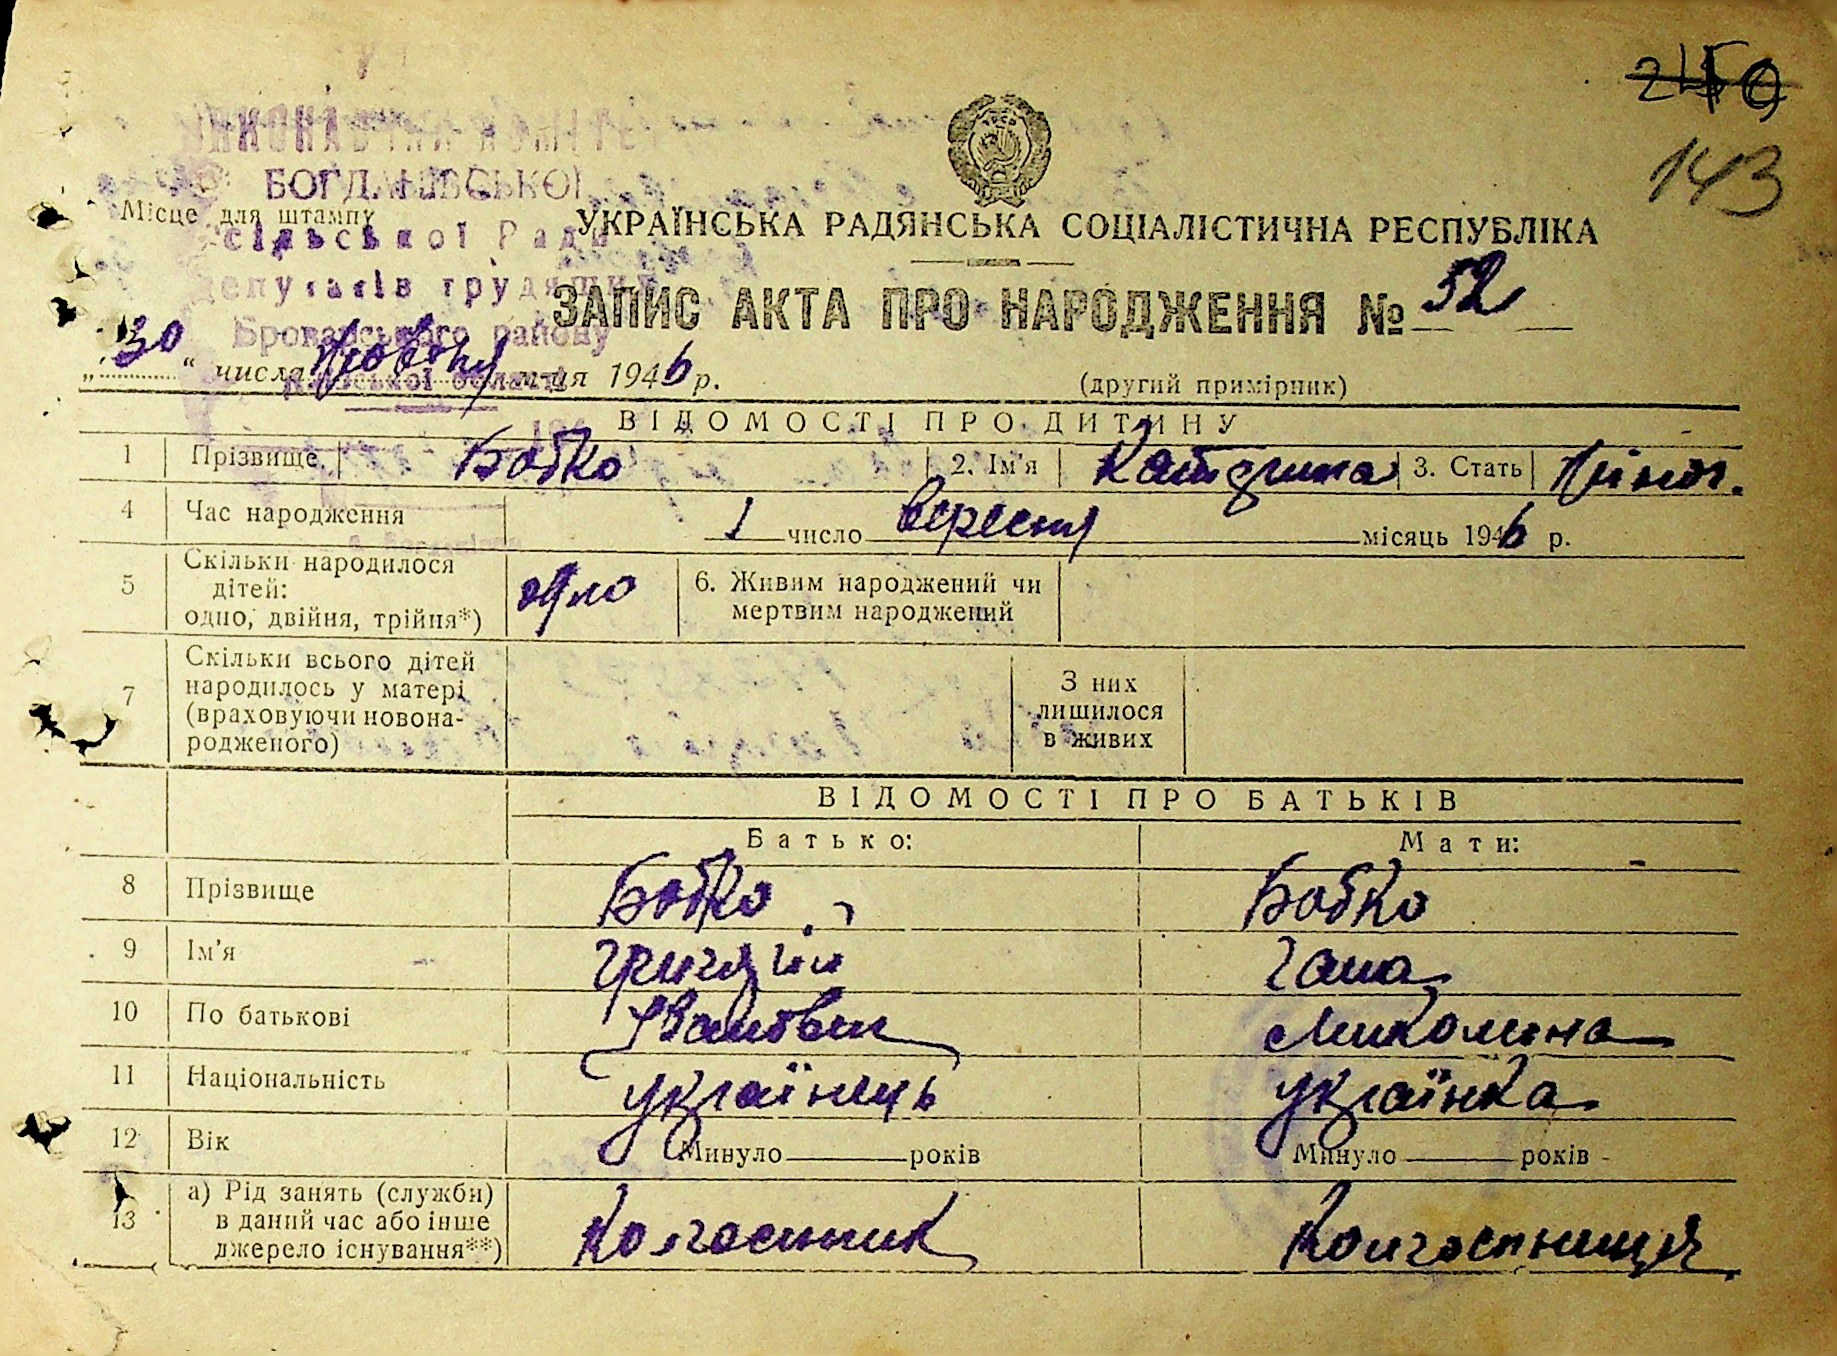 2450
143
ВИКОНАВЧИЙ КОМІТЕТ
БОГДАНІВСЬКОЇ
Місце для штампу
сільської Ради
депутатів трудящих
Броварського району
Київської області
УКРАЇНСЬКА РАДЯНСЬКА СОЦІАЛІСТИЧНА РЕСПУБЛІКА
ЗАПИС АКТА ПРО НАРОДЖЕННЯ № 52
„30“ числа жовтня м-ця 1946 р.
(другий примірник)
ВІДОМОСТІ ПРО ДИТИНУ
1 Прізвище Бобко 2. Ім'я Катерина 3. Стать жіноч.
4 Час народження 1 число вересня місяць 1946 р.
5 Скільки народилося дітей: одно, двійня, трійня*) одно 6. Живим народжений чи мертвим народжений
7 Скільки всього дітей народилось у матері (враховуючи новонародженого) З них лишилося в живих
ВІДОМОСТІ ПРО БАТЬКІВ
Батько: Мати:
8 Прізвище Бобко Бобко
9 Ім'я Григорій Гана
10 По батькові Іванович Миколаївна
11 Національність українець українка
12 Вік Минуло років Минуло років
13 а) Рід занять (служби) в даний час або інше джерело існування**) Колгоспник Колгоспниця